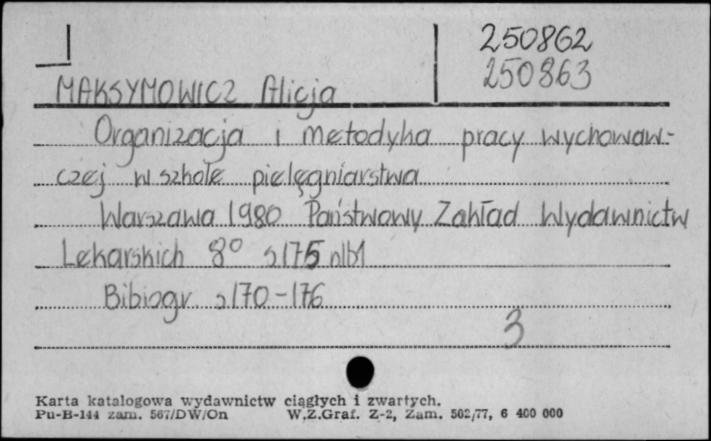 250862
250863
MAKSYMOWICZ Alicja
Organizacja i metodyka pracy wychowaw-
czej w szkole pielęgniarstwa
Warszawa 1980 Państwowy Zakład Wydawnictw
Lekarskich 8° s 175 nlb1
Bibiogr s 170-176
3
Karta katalogowa wydawnictw ciągłych i zwartych.
Pu-B-144 zam. 567/DW/On W.Z.Graf. Z-2, Zam. 502/77, 6 400 000